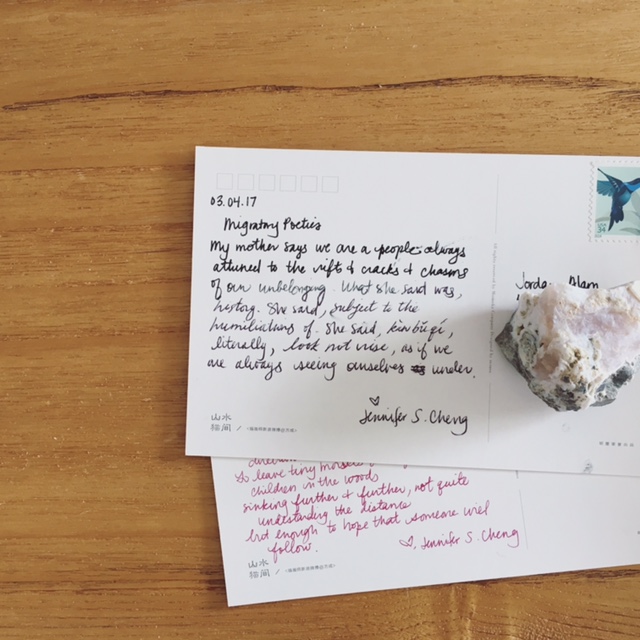 03.04.17
Migratory Poetics
My mother says we are a people always
attuned to the rifts & cracks & chasms
of our unbelonging. What she said was,
history. She said, subject to the
humiliations of. She said, kàn bù qǐ,
literally, look not rise, as if we
are always seeing ourselves under.
♡
Jennifer S. Cheng
34
Alam
山水
貓间 /
to leave tiny morsels
children in the woods
sinking further & further, not quite
understanding the distance
but enough to hope that someone will
follow.
♡, Jennifer S. Cheng
山水
貓间 /